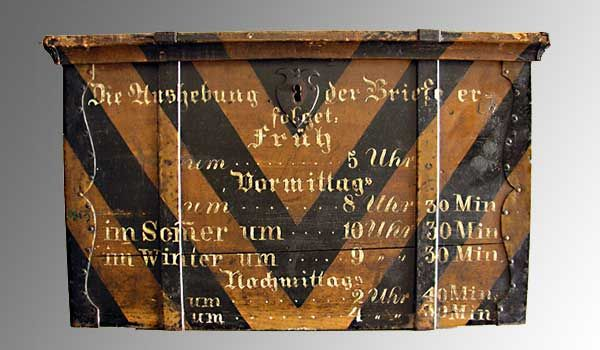 Die Aushebung der Briefe er-
folget:
Früh
um ..... 5 Uhr
Vormittags
um ..... 8 Uhr 30 Min
im Som̅er um .... 10 Uhr 30 Min
im Winter um .... 9 " " 30 Min
Nachmittags
um ..... 2 Uhr 40 Min.
um ..... 4 " " Min.